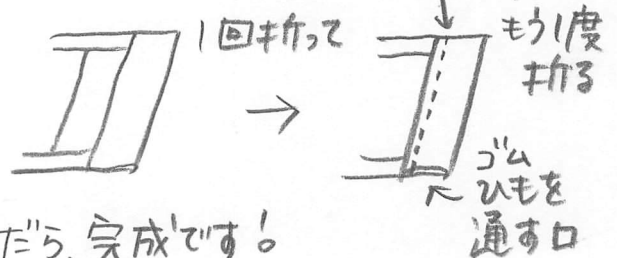 1回折って
もう1度
折る
ゴム
ひもを
通す口
だら、完成です!